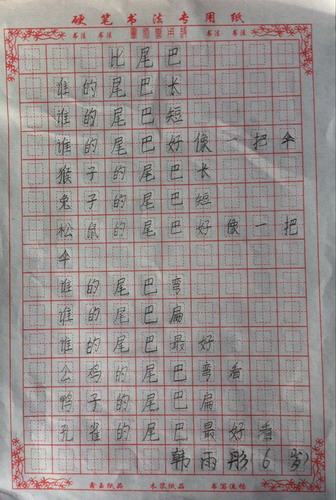 硬笔书法专用纸
书法 书法 书法 书法
比尾巴
谁的尾巴长
谁的尾巴短
谁的尾巴好像一把伞
猴子的尾巴长
兔子的尾巴短
松鼠的尾巴好像一把
伞
谁的尾巴弯
谁的尾巴扁
谁的尾巴最好
公鸡的尾巴弯看
鸭子的尾巴扁
孔雀的尾巴最好看
韩雨彤6岁